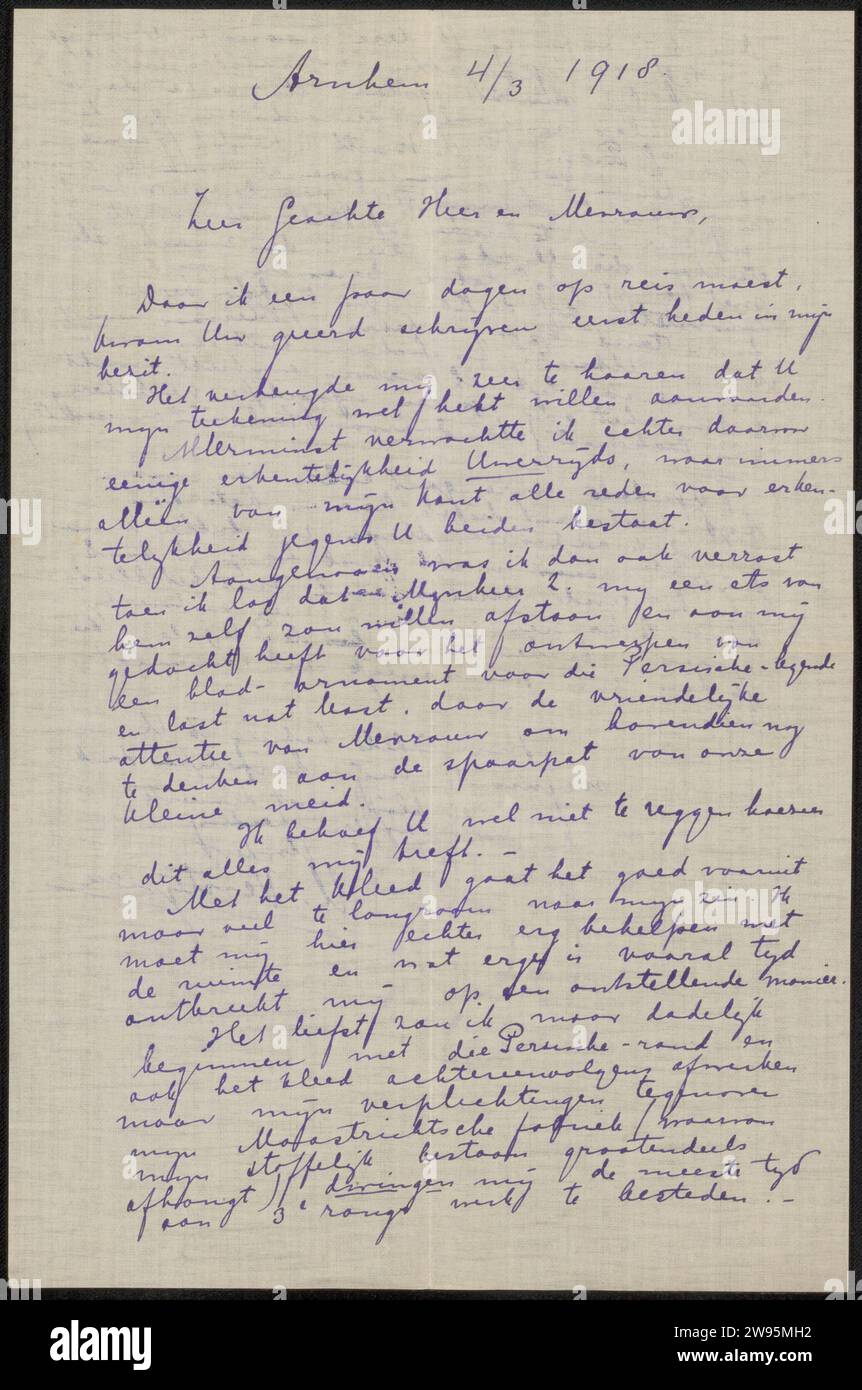 Arnhem 4/3 1918.
Zeer Geachte Heer en Mevrouw,
Daar ik een paar dagen op reis moest,
kwam Uw geeerd schrijven eerst heden in mijn
bezit.
Het verheugde mij zeer te hooren dat U
mijn teekening wel hebt willen aanvaarden.
Allerminst verwachtte ik echter daarvoor
eenige erkentelijkheid Uwerzijds, waar immers
alléén van mijn kant alle reden voor erken-
telijkheid jegens U beiden bestaat.
Aangenaam was ik dan ook verrast
toen ik las dat Mijnheer Z. mij een ets van
hem zelf zou willen afstaan en aan mij
gedacht heeft voor het ontwerpen van
een blad-ornament voor die Persische-legende
en last not least, door de vriendelijke
attentie van Mevrouw om bovendien nog
te denken aan de spaarpot van onze
kleine meid.
Ik behoef U wel niet te zeggen hoezeer
dit alles mij treft. –
Met het kleed gaat het goed vooruit
maar veel te langzaam naar mijn zin. Ik
moet mij hier echter erg behelpen met
de ruimte en wat erger is vooral tijd
ontbreekt mij op een ontstellende manier.
Het liefst zou ik maar dadelijk
beginnen met die Persische-rand en
ook het kleed achtereenvolgens afwerken
maar mijn verplichtingen tegenover
mijn Maastrichtsche fabriek (waarvan
mijn stoffelijk bestaan grootendeels
afhangt) dwingen mij de meeste tijd
aan 3e rangs werk te besteden. –
alamy
alamy
Image ID: 2W95MH2
www.alamy.com